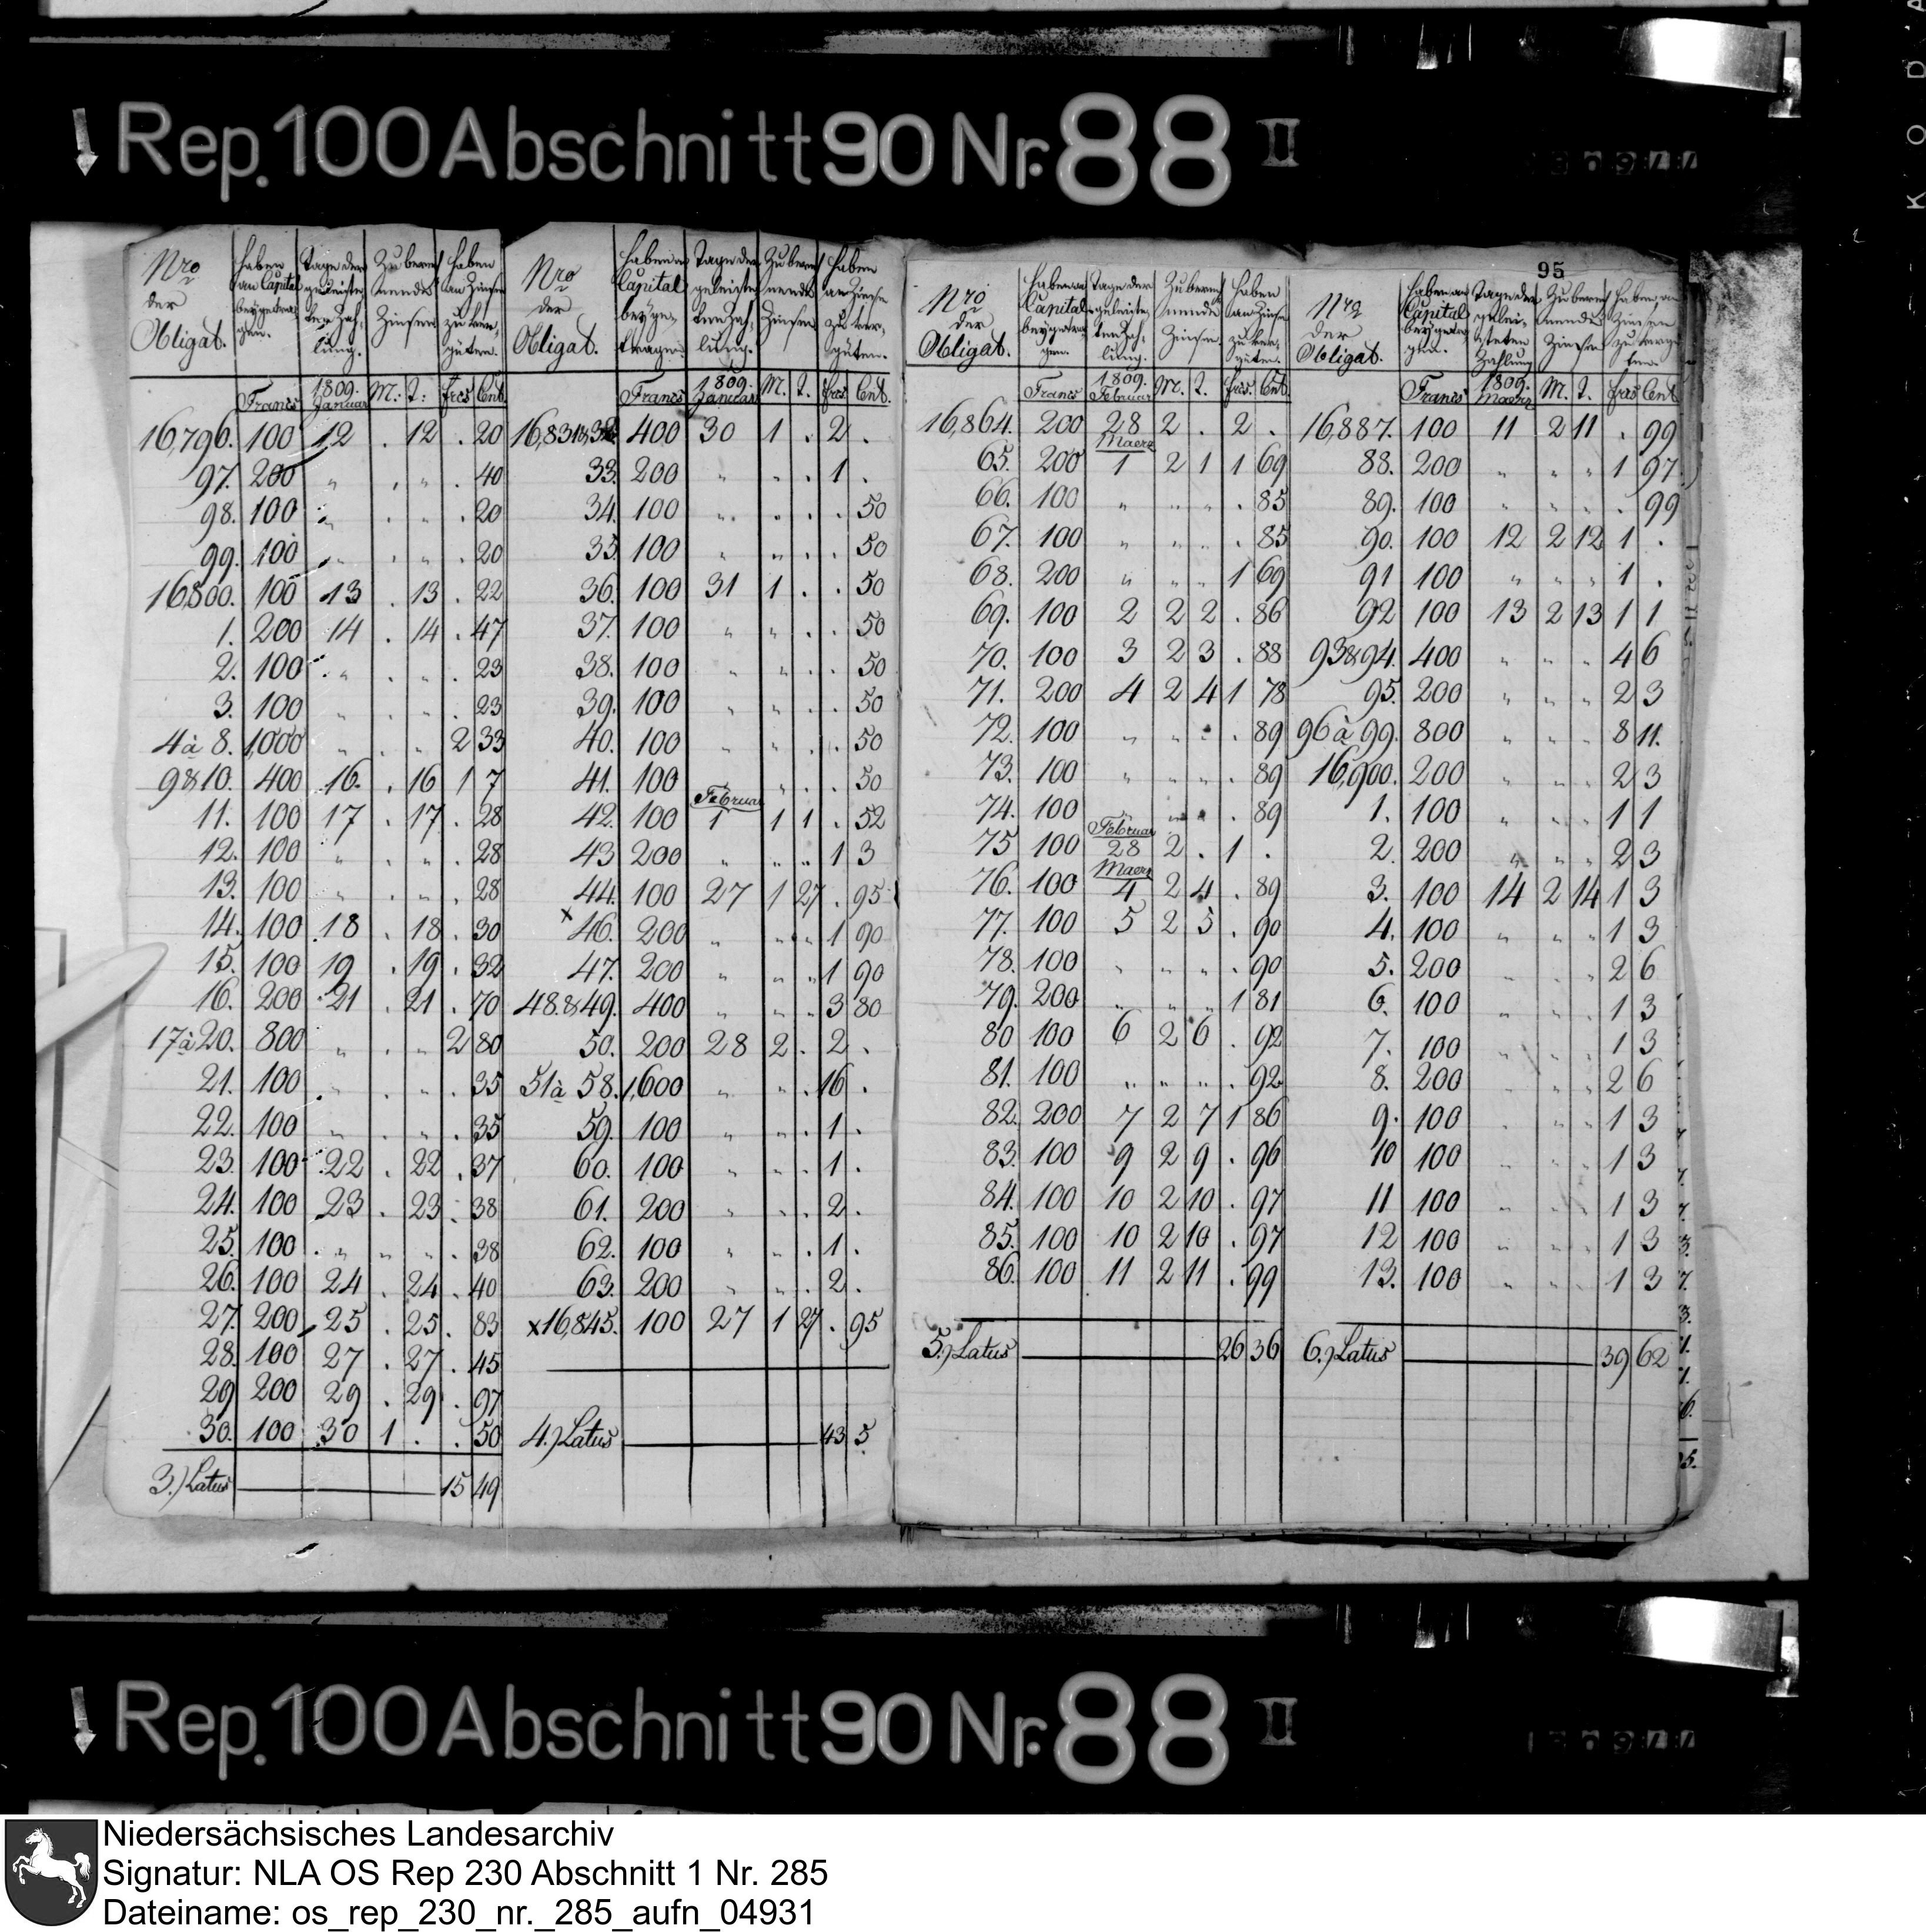 Rep. 100 Abschnitt 90 Nr. 88 II
95
Nro der Obligat. | haben an Capital beygetragen. | Tage der geleisteten Zahlung. | Zu berechnende Zinsen | haben an Zinsen zu vergüten.
Francs | 1809. Januar | M. | T. | frcs | Cent.
16,796. 100 12 . 12 . 20
97. 200 " . " . 40
98. 100 " . " . 20
99. 100 " . " . 20
16,800. 100 13 . 13 . 22
1. 200 14 . 14 . 47
2. 100 " . " . 23
3. 100 " . " . 23
4 à 8. 1,000 " . " 2 33
9 & 10. 400 16. . 16 1 7
11. 100 17 . 17 . 28
12. 100 " . " . 28
13. 100 " . " . 28
14. 100 18 . 18 . 30
15. 100 19 . 19 . 32
16. 200 21 . 21 . 70
17 à 20. 800 " . " 2 80
21. 100 " . " . 35
22. 100 " . " . 35
23. 100 22 . 22 . 37
24. 100 23 . 23 . 38
25. 100 " " " . 38
26. 100 24 . 24 . 40
27. 200 25 . 25 . 83
28. 100 27 . 27 . 45
29 200 29 . 29 . 97
30. 100 30 1 . . 50
3.) Latus 15 49
Nro der Obligat. | haben an Capital beygetragen | Tage der geleisteten Zahlung. | Zu berechnende Zinsen | haben an Zinsen zu vergüten.
Francs | 1809. Januar | M. | T. | frcs. | Cent.
16,831 & 32. 400 30 1 . 2 .
33. 200 " " . 1 .
34. 100 " " . . 50
35. 100 " " . . 50
36. 100 31 1 . . 50
37. 100 " " . . 50
38. 100 " " . . 50
39. 100 " " . . 50
40. 100 " " . . 50
41. 100 " . . 50
Februar
42. 100 1 1 1 . 52
43 200 " " " 1 3
44. 100 27 1 27 . 95
x 46. 200 " " " 1 90
47. 200 " " " 1 90
48. & 49. 400 " " " 3 80
50. 200 28 2 . 2 .
51 à 58. 1,600 " " . 16 .
59. 100 " " . 1 .
60. 100 " " . 1 .
61. 200 " " . 2 .
62. 100 " " . 1 .
63. 200 " " . 2 .
x 16,845. 100 27 1 27 . 95
4.) Latus 43 5
Nro der Obligat. | haben an Capital beygetragen. | Tage der geleisteten Zahlung. | Zu berechnende Zinsen | haben an Zinsen zu vergüten.
Francs | 1809. Februar | M. | T. | frcs. | Cent.
16,864. 200 28 2 . 2 .
Maerz
65. 200 1 2 1 1 69
66. 100 " " " . 85
67. 100 " " " . 85
68. 200 " " " 1 69
69. 100 2 2 2 . 86
70. 100 3 2 3 . 88
71. 200 4 2 4 1 78
72. 100 " " " . 89
73. 100 " " " . 89
74. 100 " " " . 89
Februar
75 100 28 2 . 1 .
Maerz
76. 100 4 2 4 . 89
77. 100 5 2 5 . 90
78. 100 " " " . 90
79. 200 " " " 1 81
80 100 6 2 6 . 92
81. 100 " " " . 92
82. 200 7 2 7 1 86
83. 100 9 2 9 . 96
84. 100 10 2 10 . 97
85. 100 10 2 10 . 97
86. 100 11 2 11 . 99
5.) Latus 26 36
Nro der Obligat. | haben an Capital beygetragen. | Tage der geleisteten Zahlung | Zu berechnende Zinsen | haben an Zinsen zu vergüten
Francs | 1809. Maerz | M. | T. | frcs | Cent
16,887. 100 11 2 11 . 99
88. 200 " " " 1 97
89. 100 " " " . 99
90. 100 12 2 12 1 .
91 100 " " " 1 .
92 100 13 2 13 1 1
93 & 94. 400 " " " 4 6
95. 200 " " " 2 3
96 à 99. 800 " " " 8 11.
16,900. 200 " " " 2 3
1. 100 " " " 1 1
2. 200 " " " 2 3
3. 100 14 2 14 1 3
4. 100 " " " 1 3
5. 200 " " " 2 6
6. 100 " " " 1 3
7. 100 " " " 1 3
8. 200 " " " 2 6
9. 100 " " " 1 3
10 100 " " " 1 3
11 100 " " " 1 3
12 100 " " " 1 3
13. 100 " " " 1 3
6.) Latus 39 62
Rep. 100 Abschnitt 90 Nr. 88 II
Niedersächsisches Landesarchiv
Signatur: NLA OS Rep 230 Abschnitt 1 Nr. 285
Dateiname: os_rep_230_nr._285_aufn_04931